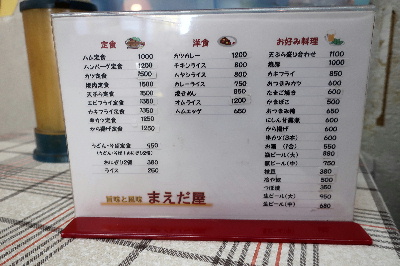 定食
ハム定食 1000
ハンバーグ定食 1200
カツ定食 1500
焼肉定食 1500
天ぷら定食 1500
エビフライ定食 1350
カキフライ定食 1350
串カツ定食 1250
から揚げ定食 1250
うどん・そば定食 950
おにぎり2個 380
ライス 250
洋食
カツカレー 1200
チキンライス 800
ハヤシライス 800
カレーライス 750
焼きめし 850
オムライス 1200
ハムエッグ 650
お好み料理
天ぷら盛り合わせ 1100
焼豚
カキフライ 850
おつまみカツ 650
たまご焼き 600
かまぼこ 500
にしん甘露煮 600
から揚げ 600
串カツ(3本) 600
お酒 (1合) 550
瓶ビール(大)
瓶ビール(中)
枝豆 380
冷や奴 350
生ビール(大) 950
生ビール(中) 680
旨味と風味 まえだ屋